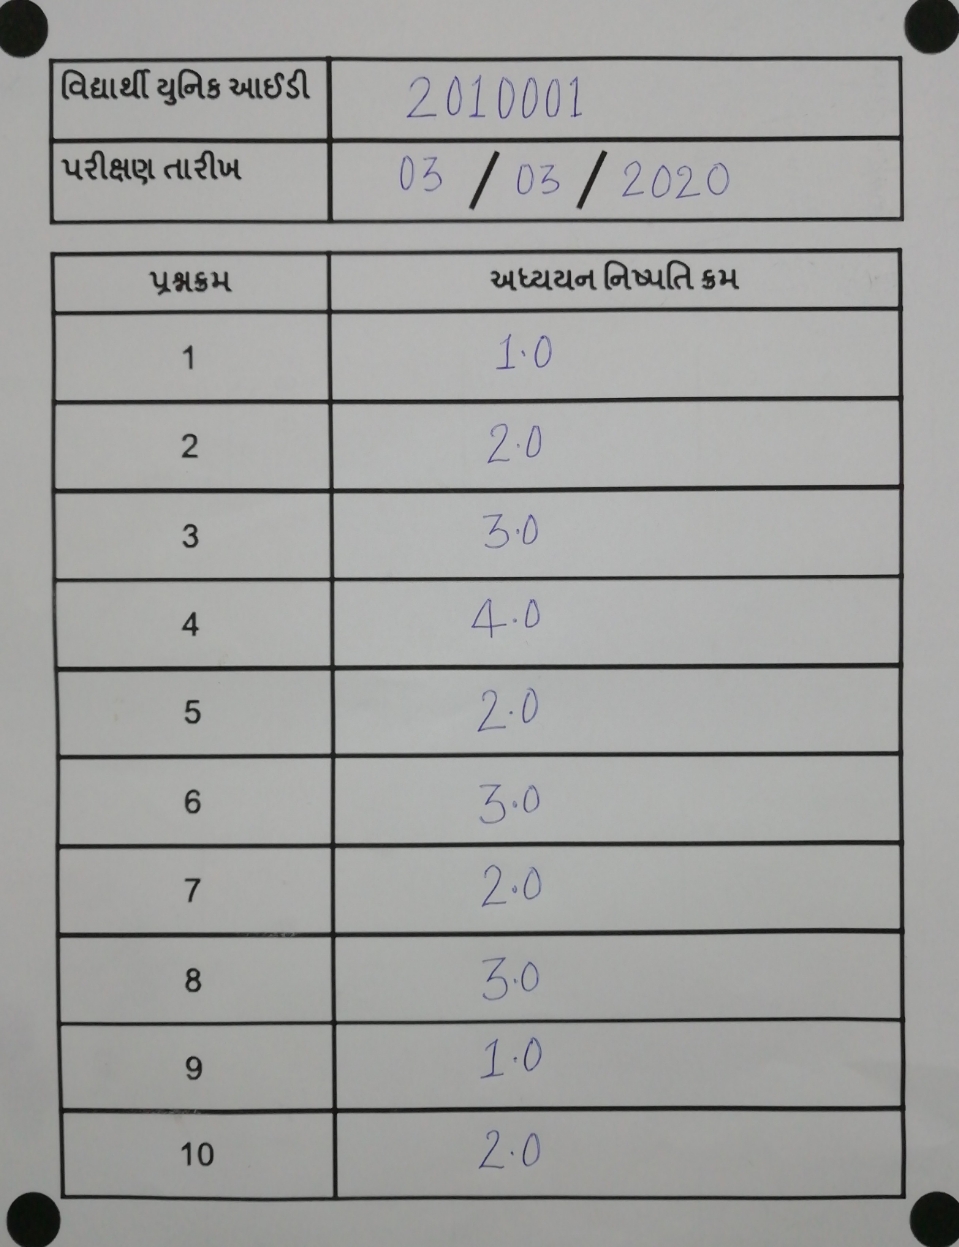 વિદ્યાર્થી યુનિક આઈડી 2010001
પરીક્ષણ તારીખ 03 / 03 / 2020
પ્રશ્નક્રમ અધ્યયન નિષ્પતિ ક્રમ
1 1.0
2 2.0
3 3.0
4 4.0
5 2.0
6 3.0
7 2.0
8 3.0
9 1.0
10 2.0